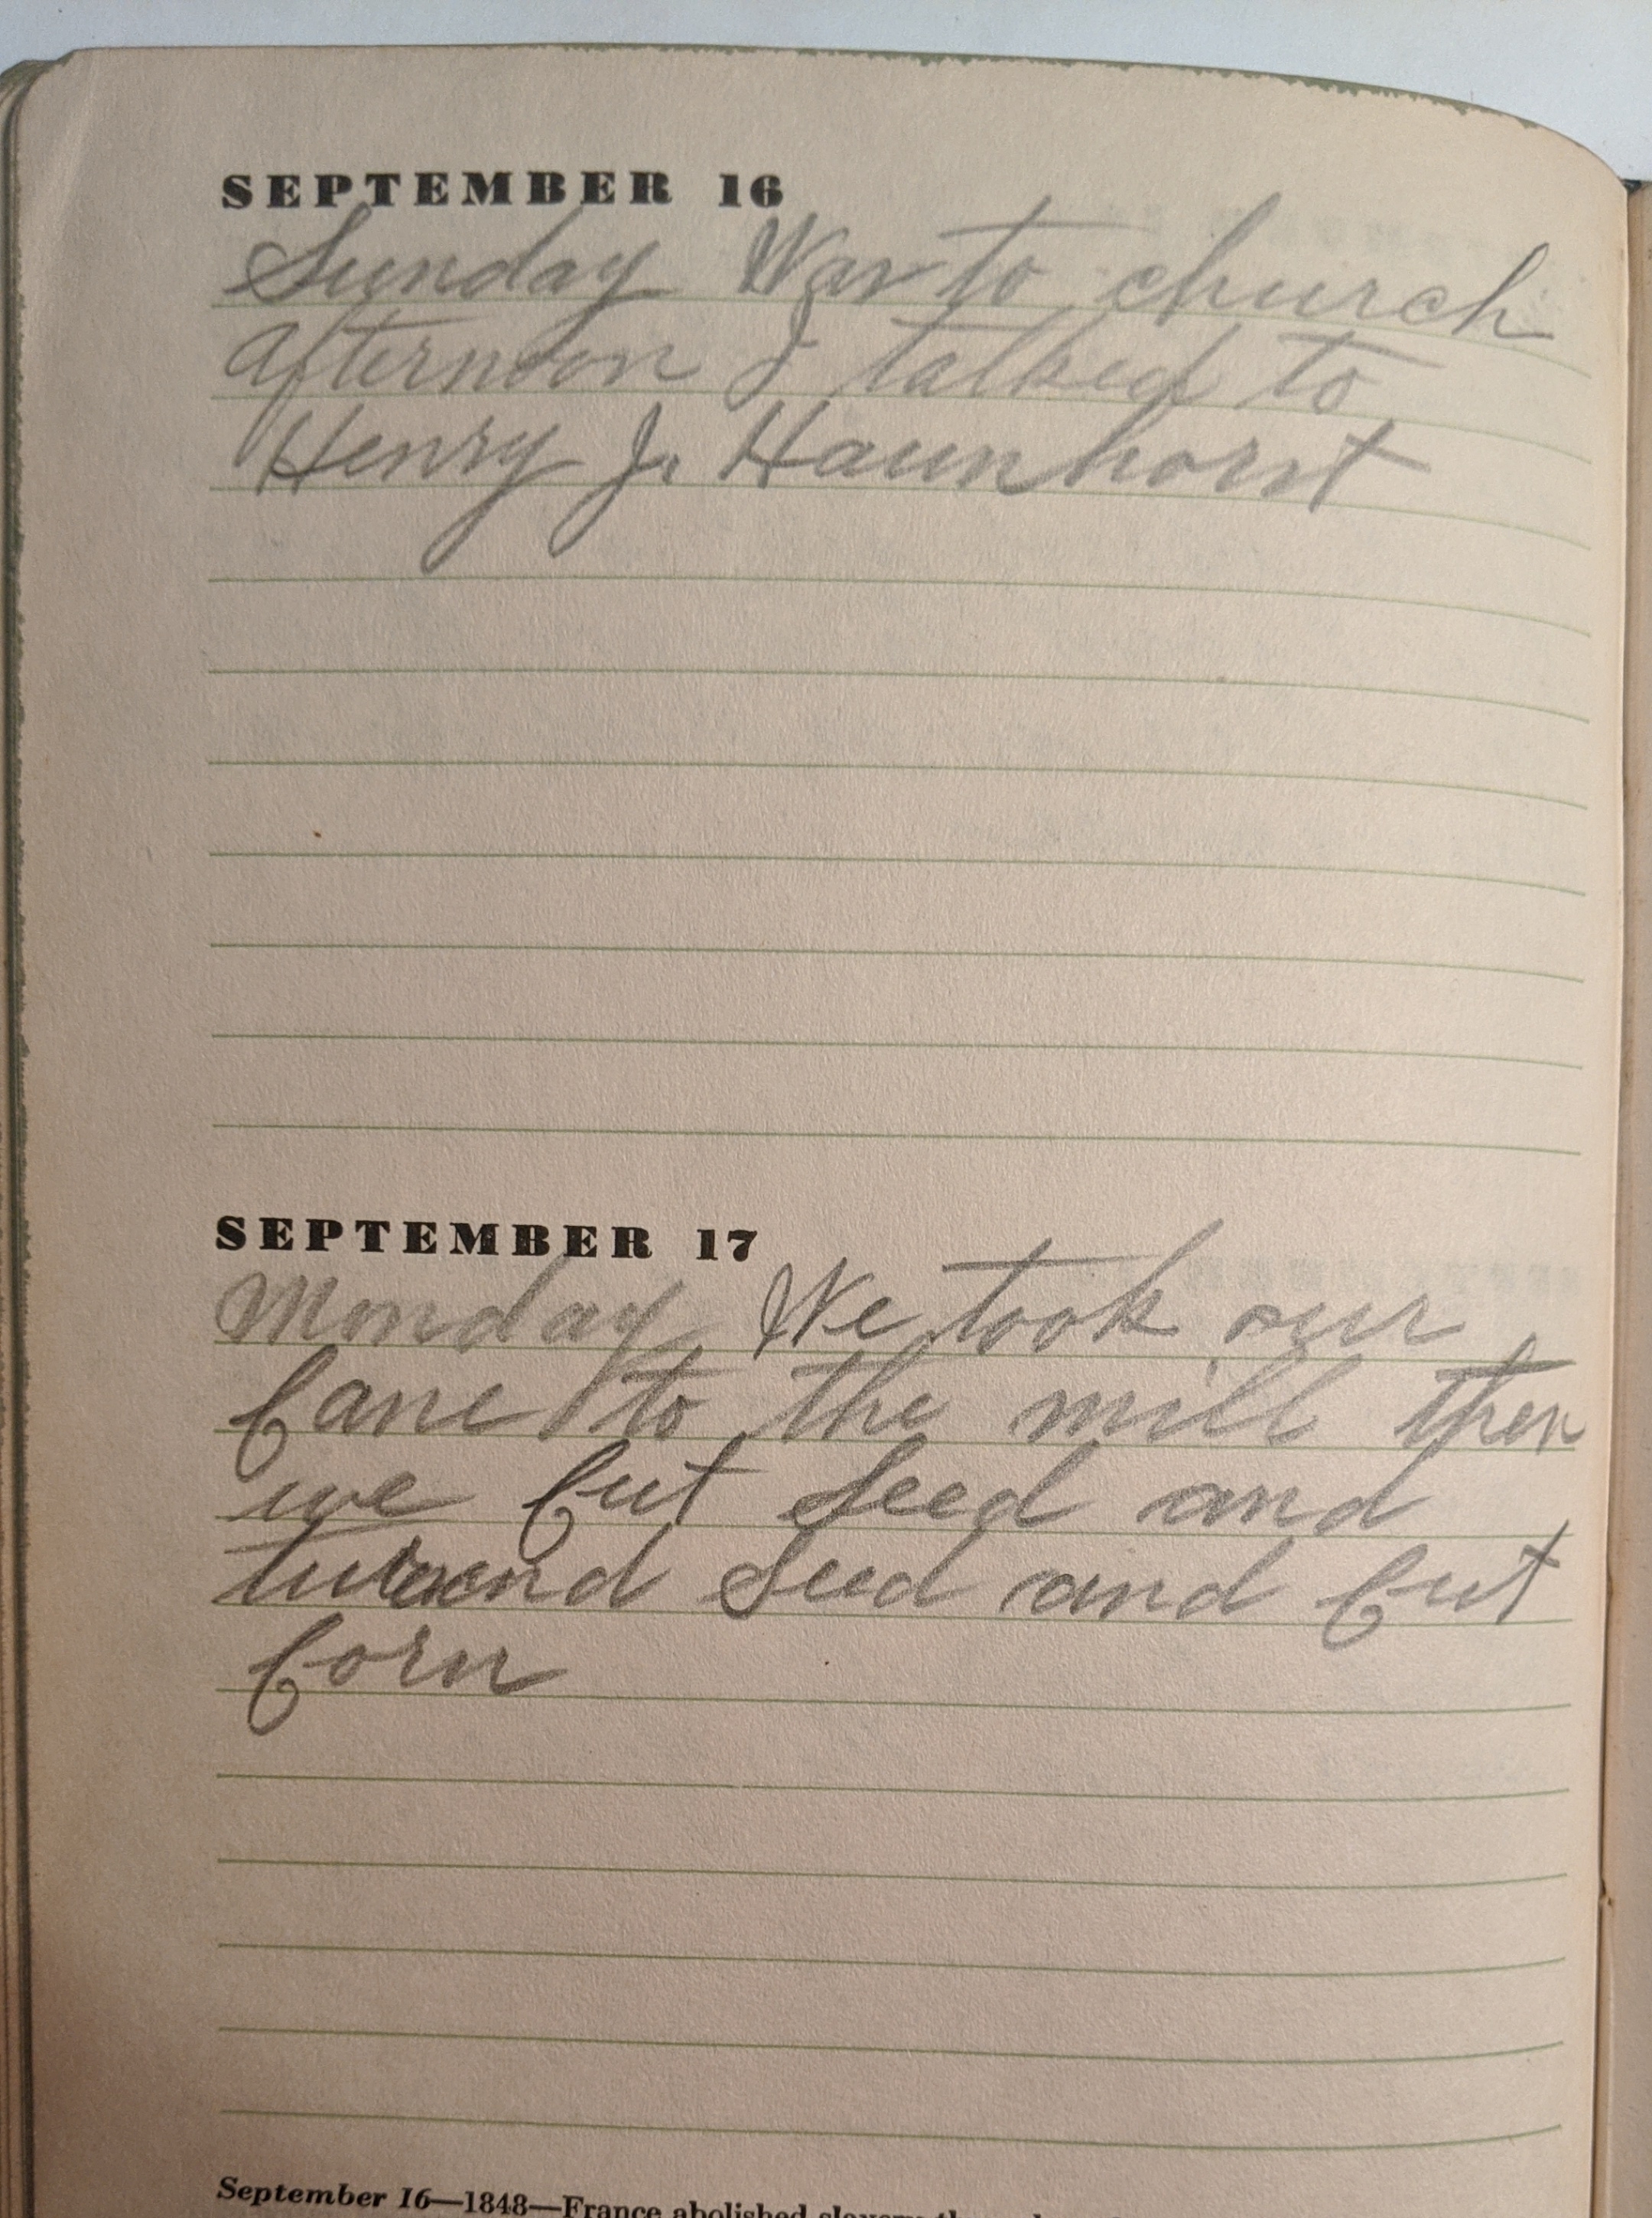 SEPTEMBER 16
Sunday Was to church
afternoon I talked to
Henry J. Haunhorst
SEPTEMBER 17
Monday We took our
Cane to the mill then
we Cut Seed and
Seed and Cut
Corn
September 16—1848—France abolished slavery